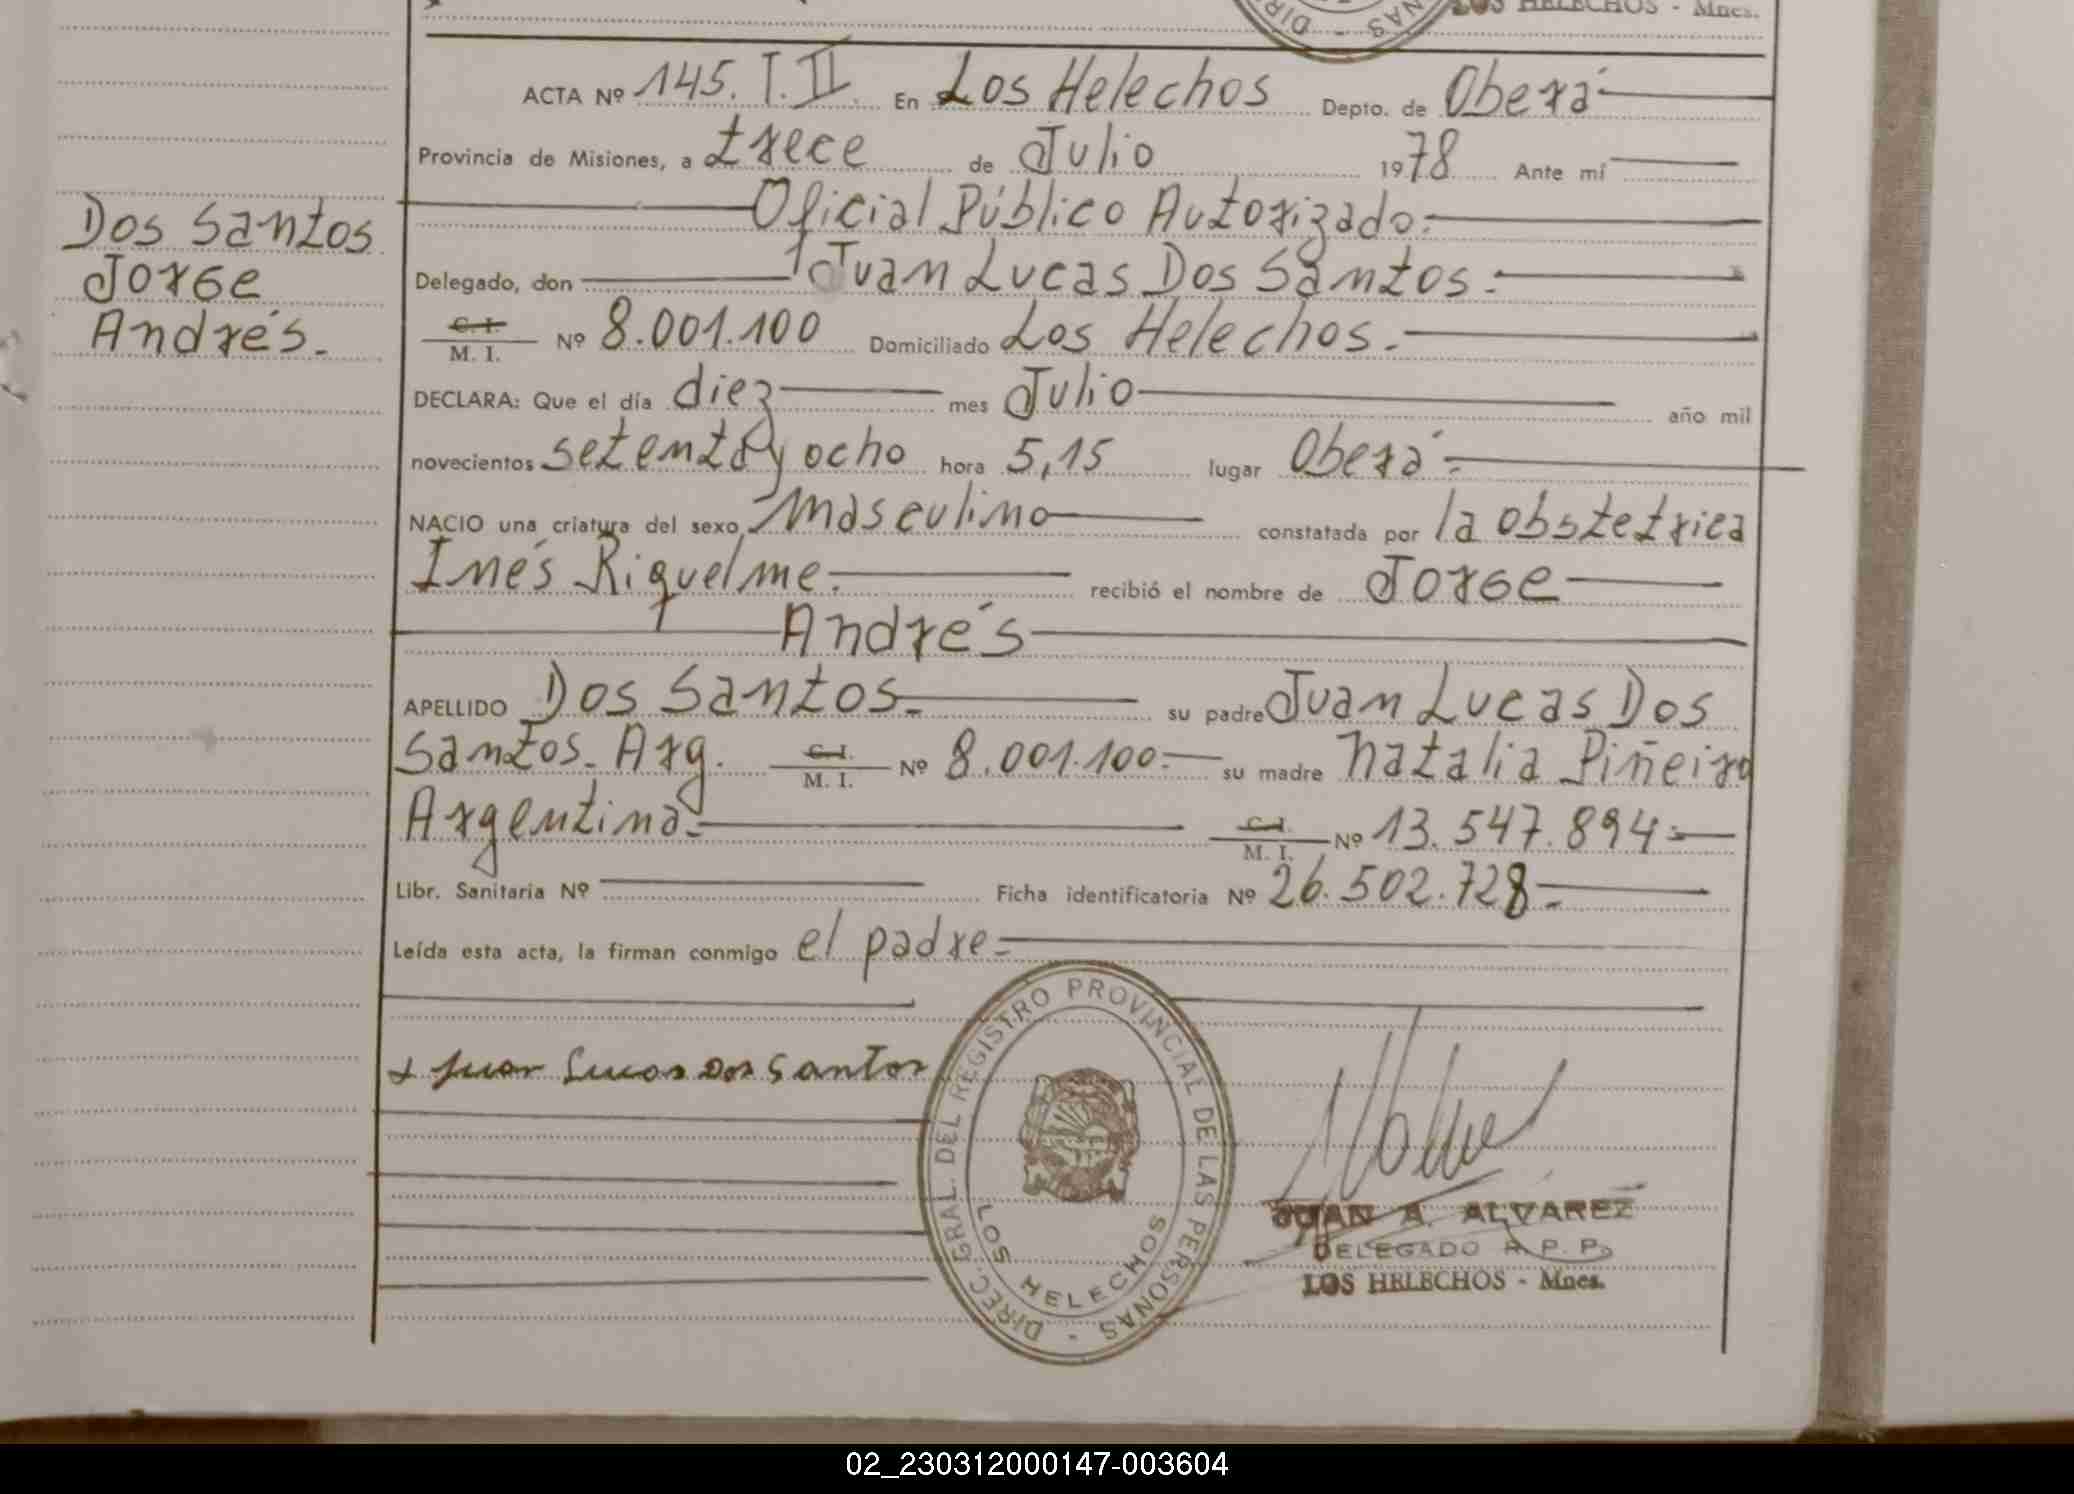 LOS HELECHOS - Mnes.
ACTA Nº 145. T. II. En Los Helechos Depto. de Oberá
Provincia de Misiones, a trece de Julio 1978 Ante mí
Oficial Público Autorizado.
Delegado, don Juan Lucas Dos Santos.
C. I. M. I. Nº 8.001.100 Domiciliado Los Helechos.
DECLARA: Que el día diez mes Julio año mil
novecientos setenta y ocho hora 5,15 lugar Oberá
NACIO una criatura del sexo masculino constatada por la obstetrica
Inés Riquelme. recibió el nombre de Jorge
Andrés
APELLIDO Dos Santos. su padre Juan Lucas Dos
Santos. Arg. C. I. M. I. Nº 8.001.100. su madre Natalia Piñeiro
Argentina. C. I. M. I. Nº 13.547.894
Libr. Sanitaria Nº Ficha identificatoria Nº 26.502.728
Leída esta acta, la firman conmigo el padre
Dos Santos
Jorge
Andrés.
Juan Lucas Dos Santos
DIREC. GRAL. DEL REGISTRO PROVINCIAL DE LAS PERSONAS -
LOS HELECHOS
JUAN A. ALVAREZ
DELEGADO R. P. P.
LOS HELECHOS - Mnes.
02_230312000147-003604